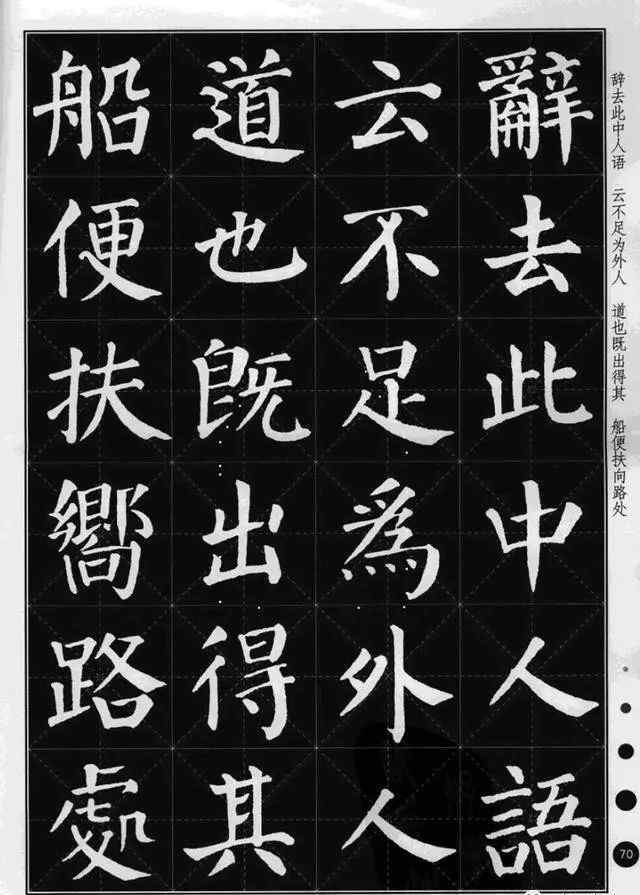 辭去此中人語
云不足為外人
道也既出得其
船便扶嚮路處
辞去此中人语 云不足为外人 道也既出得其 船便扶向路处
70